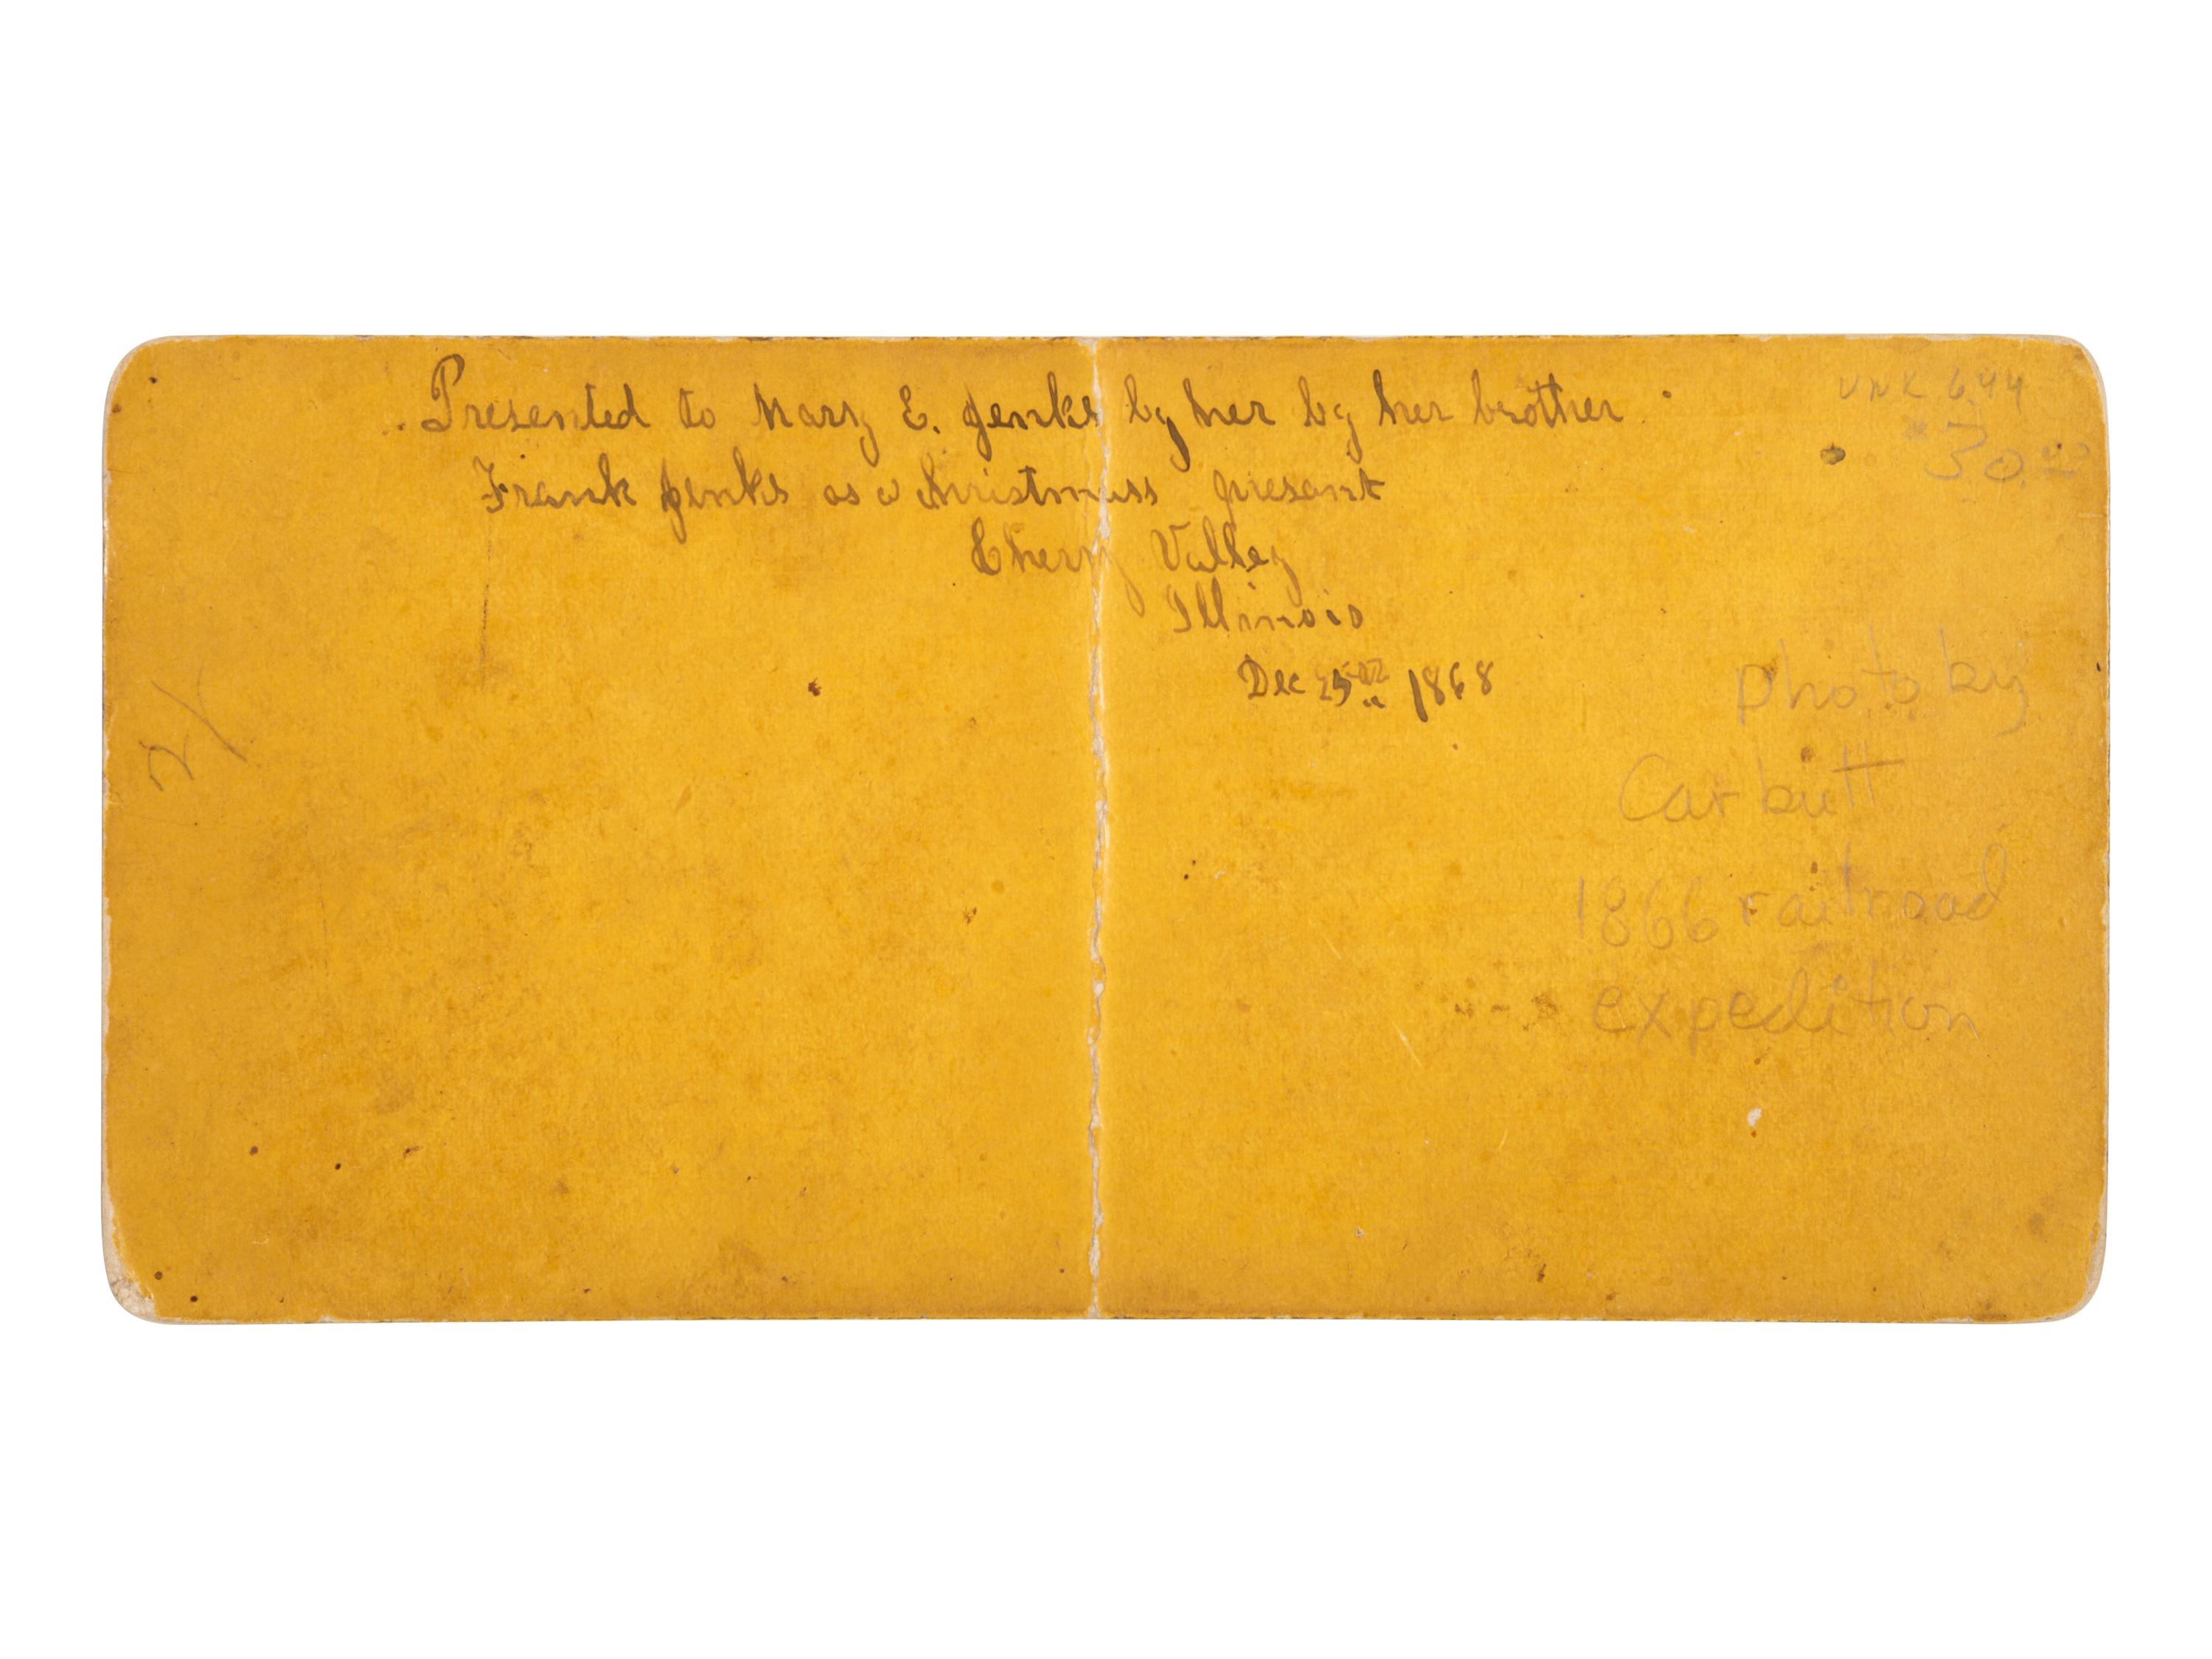 Presented to Mary E. Jenks by her by her brother
Frank Jenks as a Christmass present
Cherry Valley
Illinois
Dec 25th 1868
UNK 644
30.00
photo by
Carbutt
1866 railroad
expedition
2/